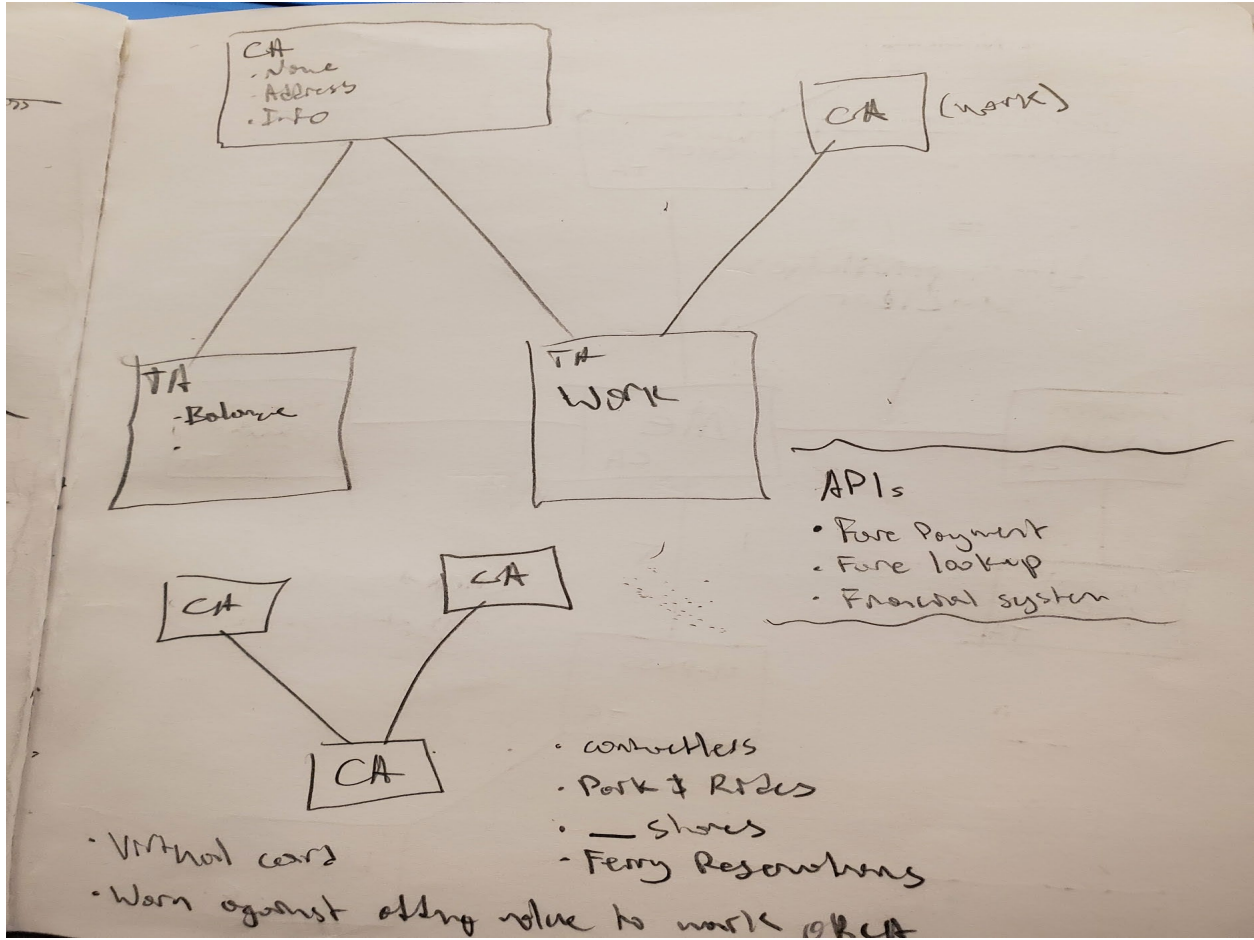 CA
- Name
- Address
• Info
CA (work)
TA
- Balance
TA
Work
APIs
• Fare Payment
• Fare lookup
• Financial system
CA
CA
CA
• contactless
• Park & Rides
• __ shares
- Ferry Reservations
• Virtual card
• Warn against adding value to work ORCA